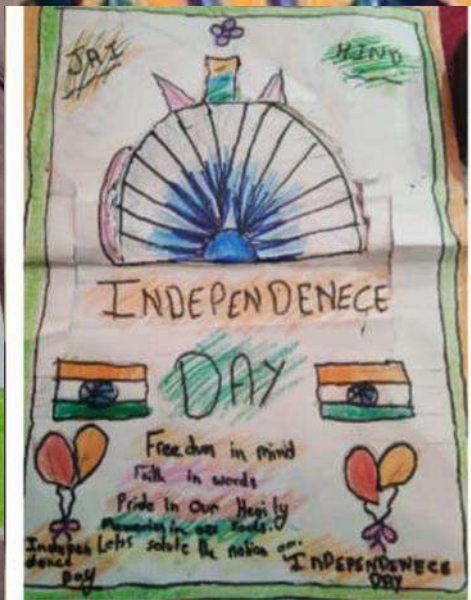 JAI HIND
INDEPENDENECE
DAY
Freedom in mind
Faith in words
Pride in Our Heartly
Memories in our Souls.
Lets salute the nation on
Indepen
dence
Day
INDEPENDENECE
DAY